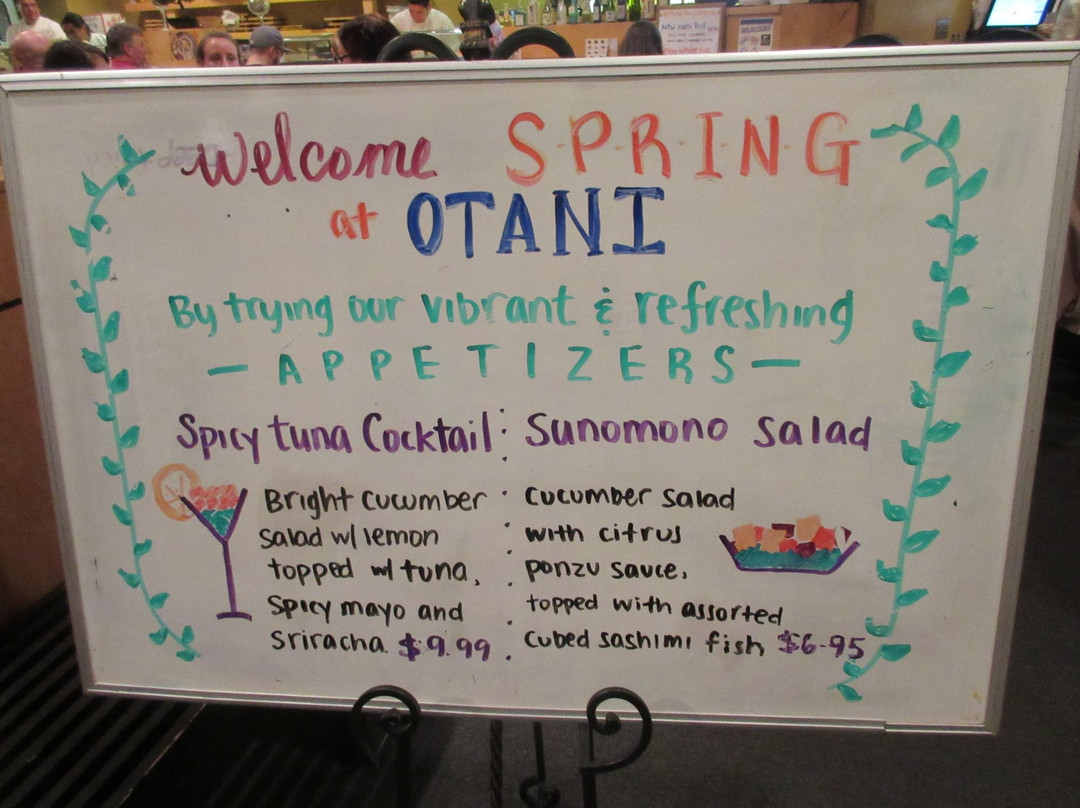 Welcome SPRING
at OTANI
By trying our vibrant & refreshing
— APPETIZERS —
Spicy tuna Cocktail
Bright cucumber
salad w/ lemon
topped w/ tuna,
Spicy mayo and
Sriracha. $9.99
Sunomono Salad
cucumber salad
with citrus
ponzu sauce,
topped with assorted
cubed sashimi fish $6.95